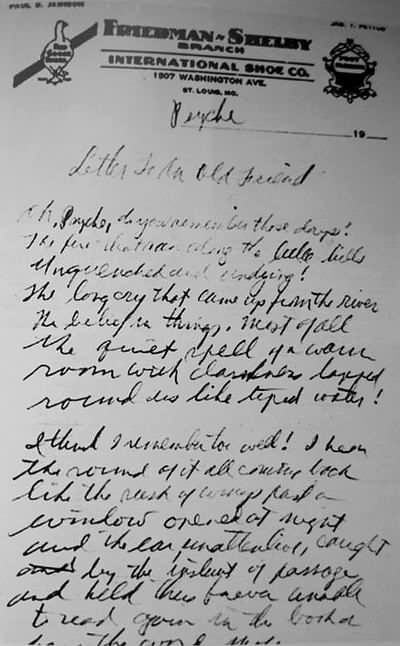 PAUL D. JAMISON
JAS. T. PETTUS
FRIEDMAN-SHELBY
BRANCH
INTERNATIONAL SHOE CO.
1507 WASHINGTON AVE.
ST. LOUIS, MO.
RED GOOSE SHOES
Psyche
19
Letter To An Old Friend
Oh, Psyche, do you remember those days!
The fire that ran along the little hills
Unquenched and undying!
The long cry that came up from the river
The belief in things. Most of all
the quiet spell of a warm
room with darkness lapped
round us like tepid water!
I think I remember too well! I hear
the sound of it all coming back
like the rush of wings past a
window opened at night
and the ear unattentive, caught
by the instant of passage
and held thus forever unable
to read again in the book
the word